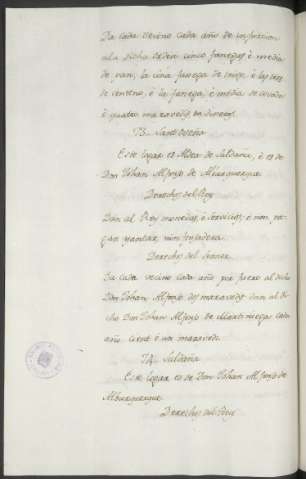 Da cada vecino cada año de infurcion
a la dicha Orden cinco fanegas é media
de pan, la una fanega de trigo, é las tres
de centeno, é la fanega, é media de cevada
é quatro maravedis en dineros.
73.
Este logar es Aldea de Saldaña, é es de
Don Johan Alfonso de Alburquerque
Derechos del Rey
Dan al Rey monedas, é servicios, é non pa-
gan yantar, nin fonsadera.
Derechos del Señor
Da cada vecino cada año por fuero al dicho
Don Johan Alfonso dos maravedis, é dan al di-
cho Don Johan Alfonso de Martiniega cada
año ciento é un maravedis
74. Saldaña
Este logar es de Don Johan Alfonso de
Alburquerque
Derechos del Rey